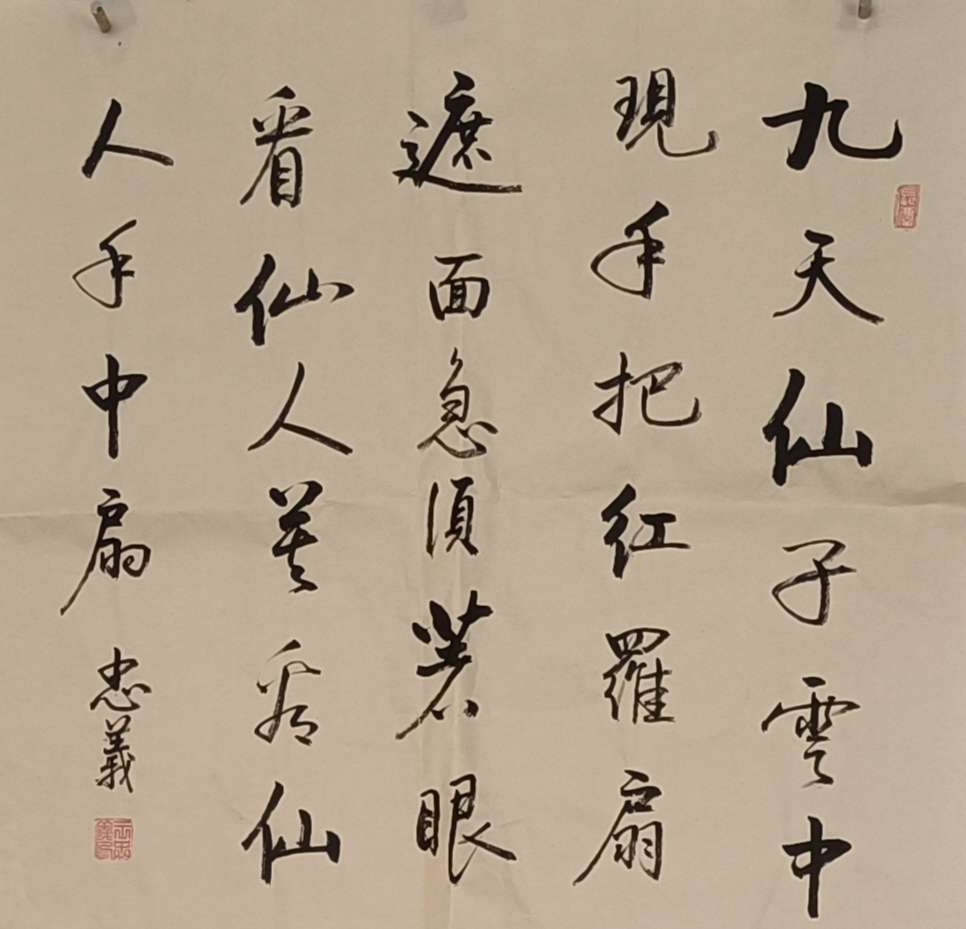 九天仙子雲中
現手把紅羅扇
遮面急須著眼
看仙人莫看仙
人手中扇
忠義